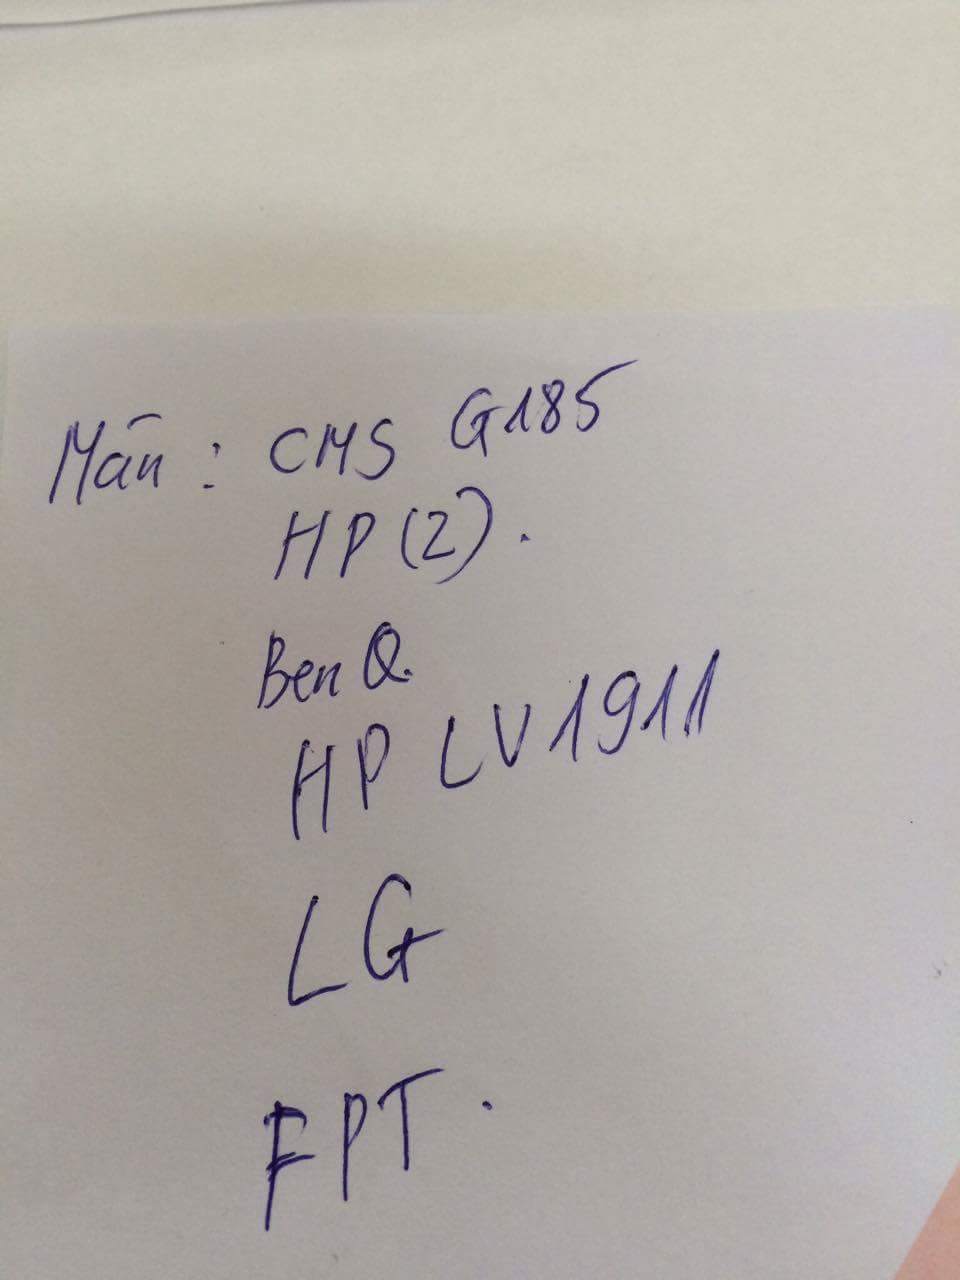 Màn : CMS G185
HP (2).
BenQ.
HP LV1911
LG
FPT.